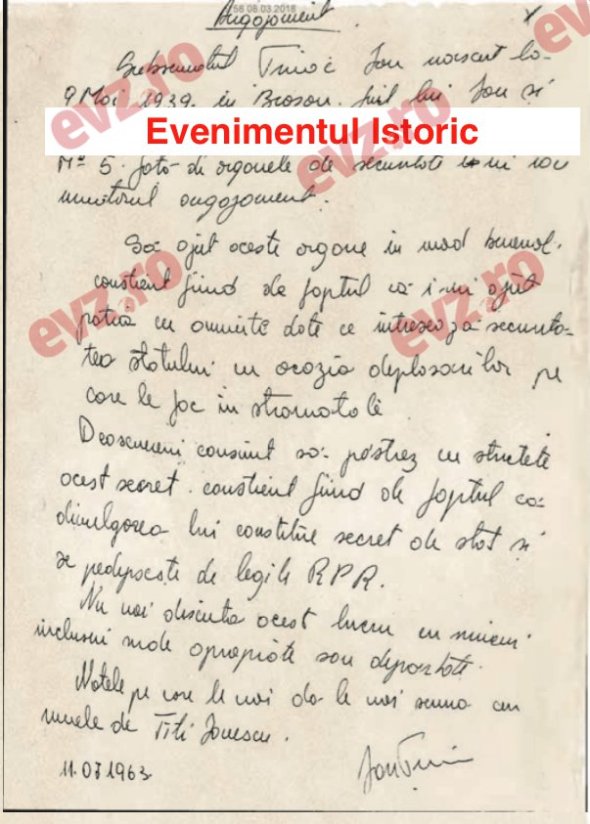 58 08.03.2018
Angajament
Subsemnatul Tiriac Ion născut la
9 Mai 1939. în Brașov. fiul lui Ion și
Evenimentul Istoric
Nº 5. față de organele de securitate îmi iau
următorul angajament.
Să ajut aceste organe în mod benevol.
conștient fiind de faptul că îmi ajut
patria cu anumite date ce intresează securita-
tea statului cu ocazia deplasarilor pe
care le fac in strainatate
Deasemeni consimt să păstrez cu strictete
acest secret. conștient fiind de faptul că
divulgarea lui constitue secret de stat și
se pedepseste de legile RPR.
Nu voi discuta acest lucru cu nimeni
inclusiv rude apropiate sau departate.
Notele pe care le voi da le voi semna cu
numele de Titi Ionescu.
11.07 1963
evz.ro
evz.ro
evz.ro
evz.ro
evz.ro